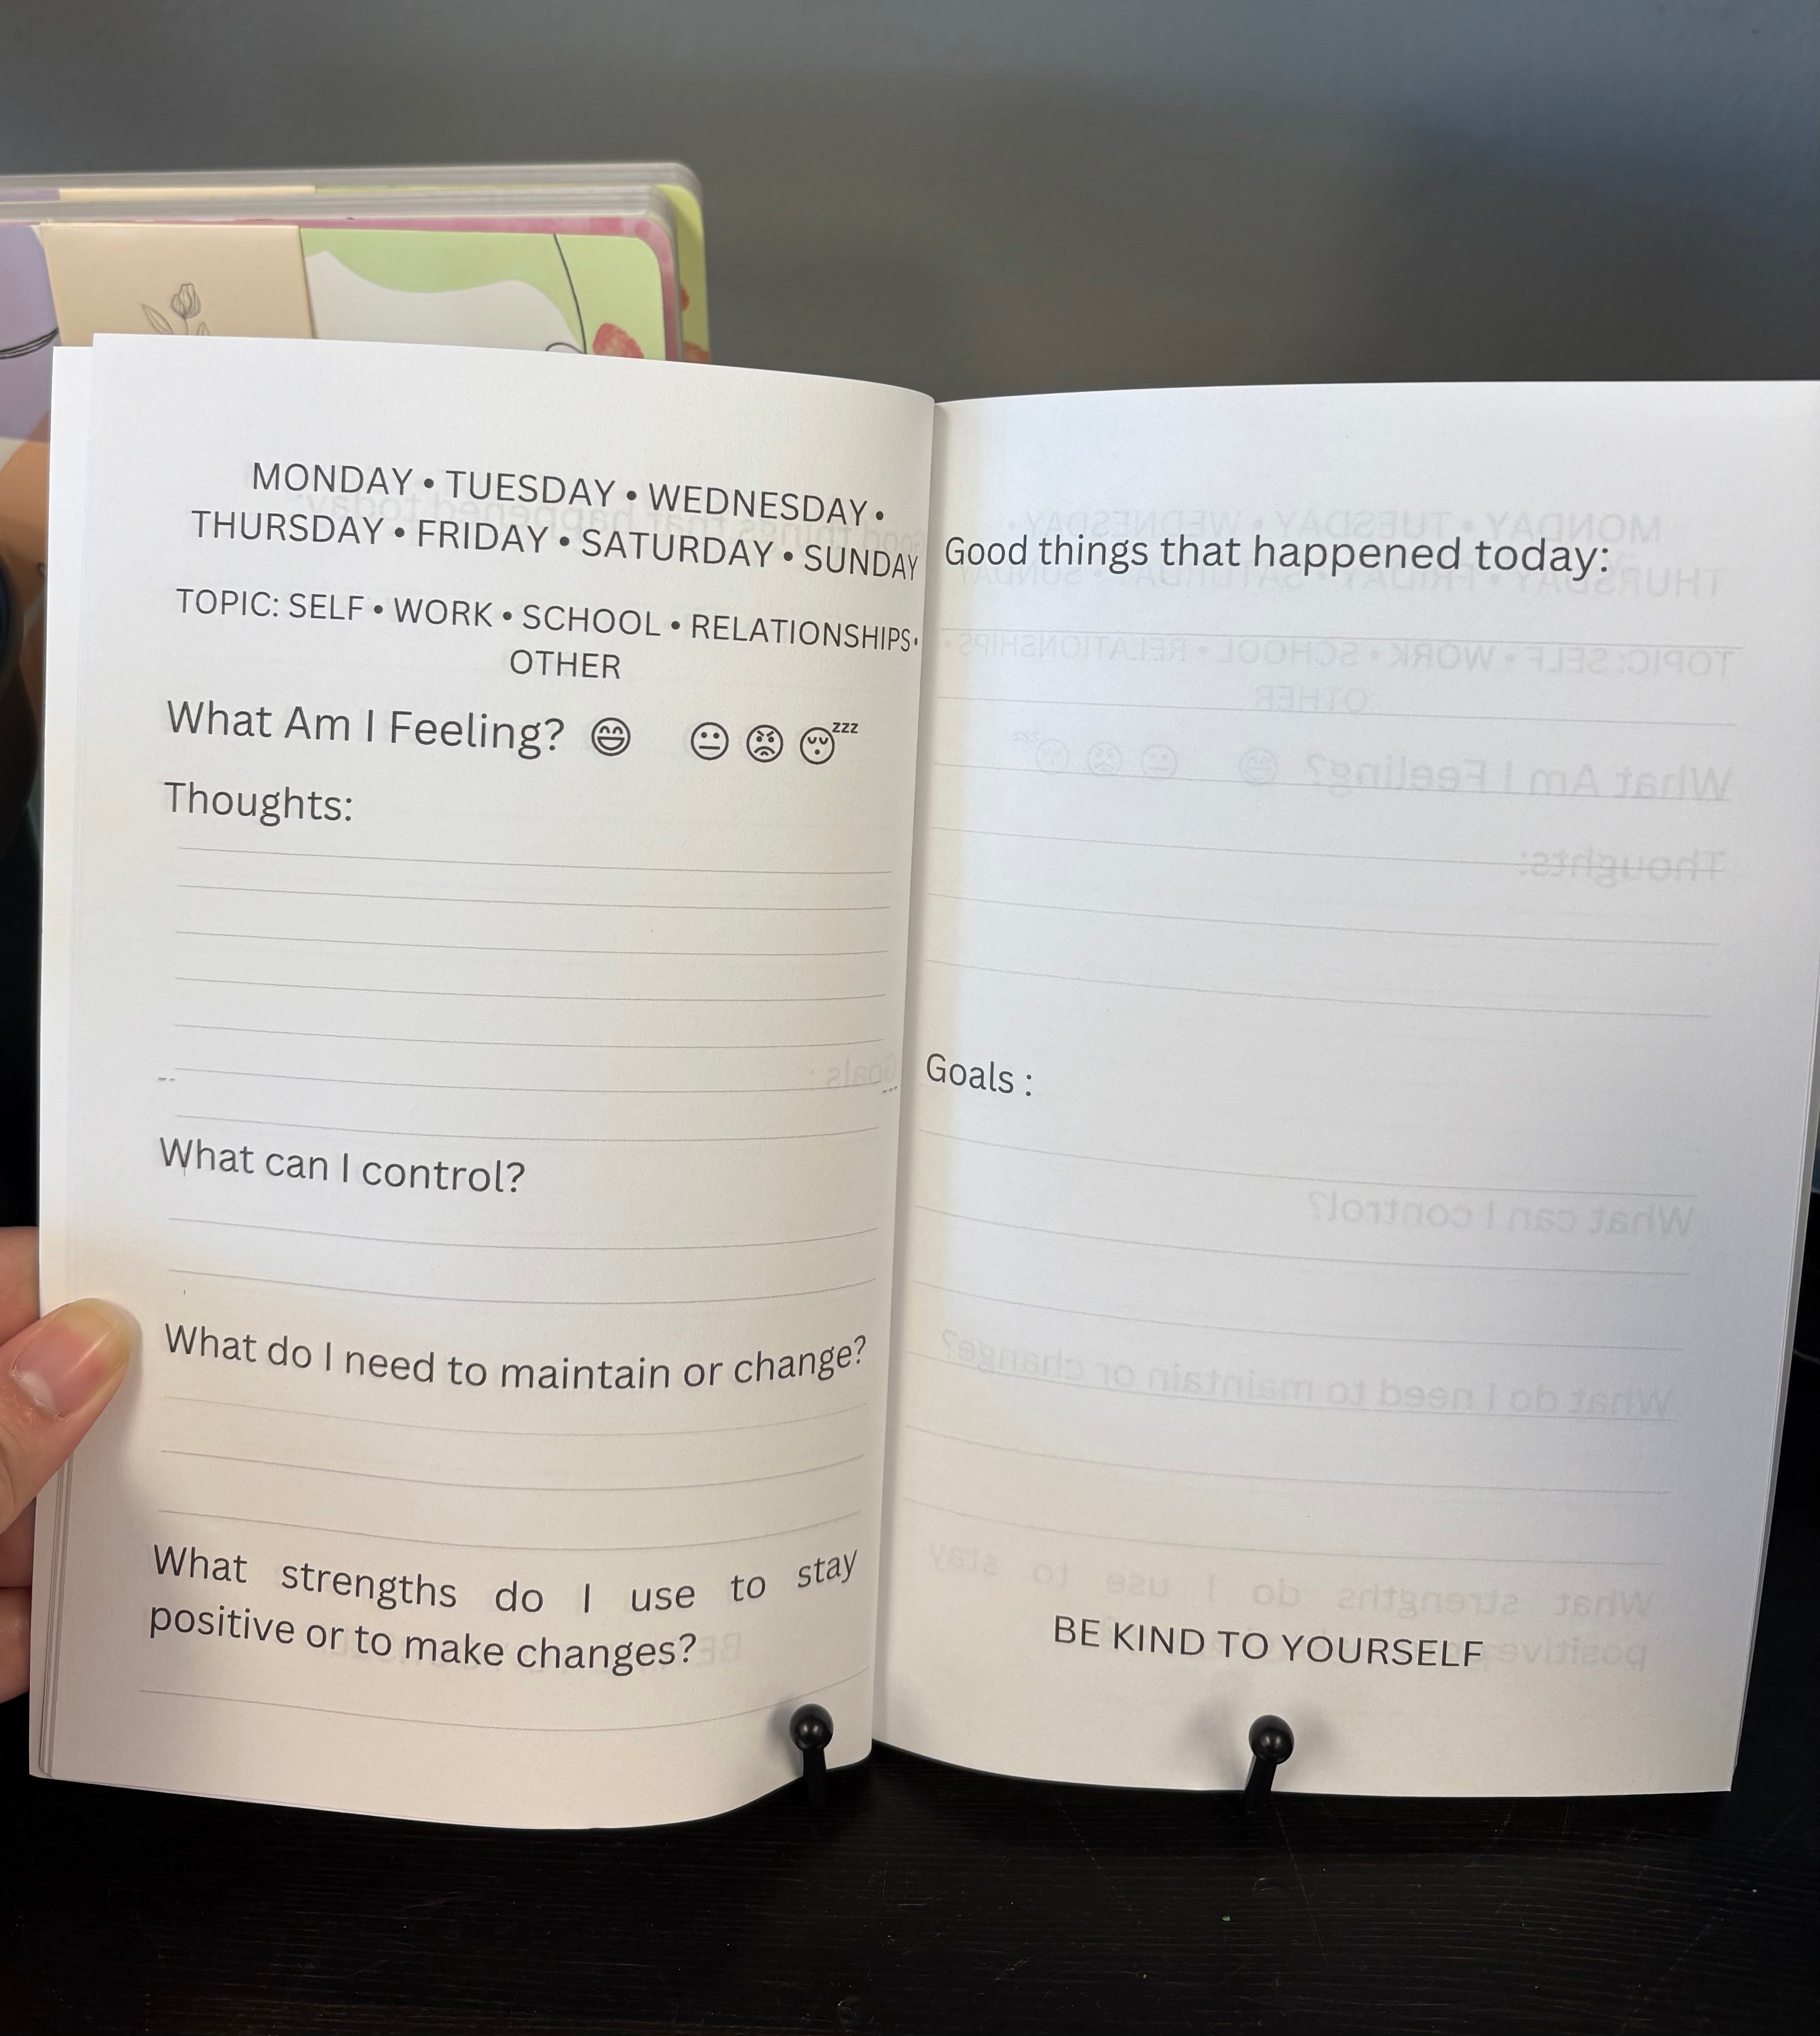 MONDAY • TUESDAY • WEDNESDAY •
THURSDAY • FRIDAY • SATURDAY • SUNDAY
TOPIC: SELF • WORK • SCHOOL • RELATIONSHIPS•
OTHER
What Am I Feeling? 😄 😐 😡 😴zzz
Thoughts:
What can I control?
What do I need to maintain or change?
What strengths do I use to stay
positive or to make changes?
Good things that happened today:
Goals :
BE KIND TO YOURSELF